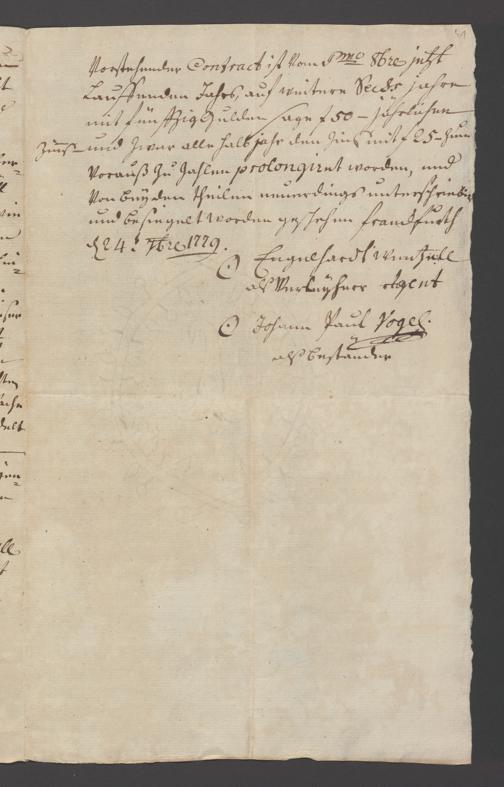 Vorstehender Contract ist vom 1mo 8bre jetzt
Lauffenden Jahrs, auf weitere Sechs Jahre
mit fünffzig Gulden sage f 50 – jährlichen
Zinnß und zwar alle halb jahr den Zinß mit f 25 – zum
Vorauß zu zahlen prolongirt worden, und
von beyden theilen neuerdings unterschrieben
und besiegelt worden geschehen franckfurth
d 24t 7bre 1779.
Engelhardt
als Verleyhner Agent
Johann Paul Vogel.
als beständer